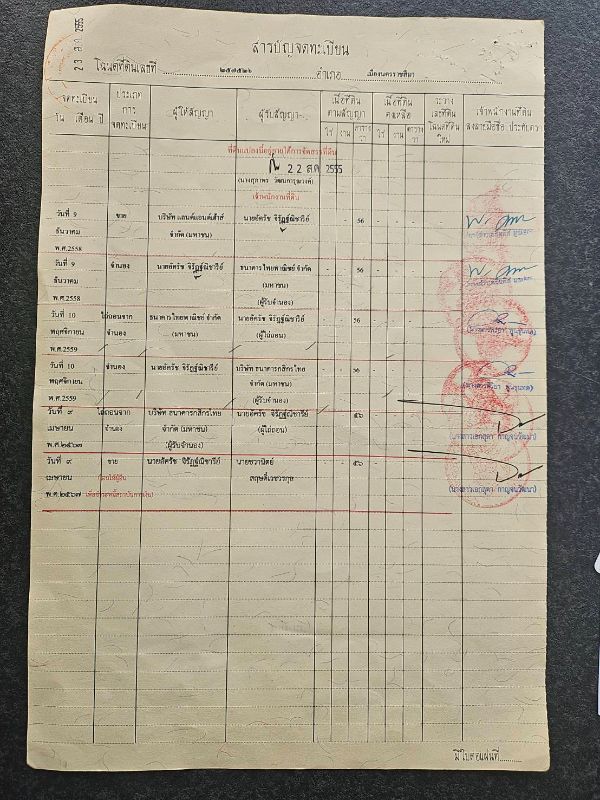 23 ส.ค. 2555
สารบัญจดทะเบียน
โฉนดที่ดินเลขที่ ๒๕๗๕๒๖ อำเภอ เมืองนครราชสีมา
จดทะเบียน วัน เดือน ปี ประเภทการจดทะเบียน ผู้ให้สัญญา ผู้รับสัญญา เนื้อที่ดินตามสัญญา ไร่ งาน ตารางวา เนื้อที่ดินคงเหลือ ไร่ งาน ตารางวา ระวาง เลขที่ดิน โฉนดที่ดินใหม่ เจ้าพนักงานที่ดิน ลงลายมือชื่อ ประทับตรา
ที่ดินแปลงนี้อยู่ภายใต้การจัดสรรที่ดิน
22 ส.ค. 2555
เจ้าพนักงานที่ดิน
วันที่ 9 ขาย บริษัท แลนด์แอนด์เฮ้าส์ นายอัครัช จิรัฏฐ์ณิชารีย์ - - 56 - - -
ธันวาคม จำกัด (มหาชน)
พ.ศ.2558
วันที่ 9 จำนอง นายอัครัช จิรัฏฐ์ณิชารีย์ ธนาคารไทยพาณิชย์ จำกัด - - 56 - - -
ธันวาคม (มหาชน)
พ.ศ.2558 (ผู้รับจำนอง)
วันที่ 10 ไถ่ถอนจาก ธนาคารไทยพาณิชย์ จำกัด นายอัครัช จิรัฏฐ์ณิชารีย์ - - 56 - - -
พฤศจิกายน จำนอง (มหาชน) (ผู้ไถ่ถอน)
พ.ศ.2559
วันที่ 10 จำนอง นายอัครัช จิรัฏฐ์ณิชารีย์ บริษัท ธนาคารกสิกรไทย - - 56 - - -
พฤศจิกายน จำกัด (มหาชน)
พ.ศ.2559 (ผู้รับจำนอง)
วันที่ ๙ ไถ่ถอนจาก บริษัท ธนาคารกสิกรไทย นายอัครัช จิรัฏฐ์ณิชารีย์ - - ๕๖ - - -
เมษายน จำนอง จำกัด (มหาชน) (ผู้ไถ่ถอน)
พ.ศ.๒๕๖๗ (ผู้รับจำนอง) (นางสาวเอกสุดา กาญจนวัฒนา)
วันที่ ๙ ขาย นายอัครัช จิรัฏฐ์ณิชารีย์ นายชวานิตย์ - - ๕๖ - - -
เมษายน สฤษดิ์เวชวรกุล
พ.ศ.๒๕๖๗ (นางสาวเอกสุดา กาญจนวัฒนา)
มีใบต่อแผ่นที่